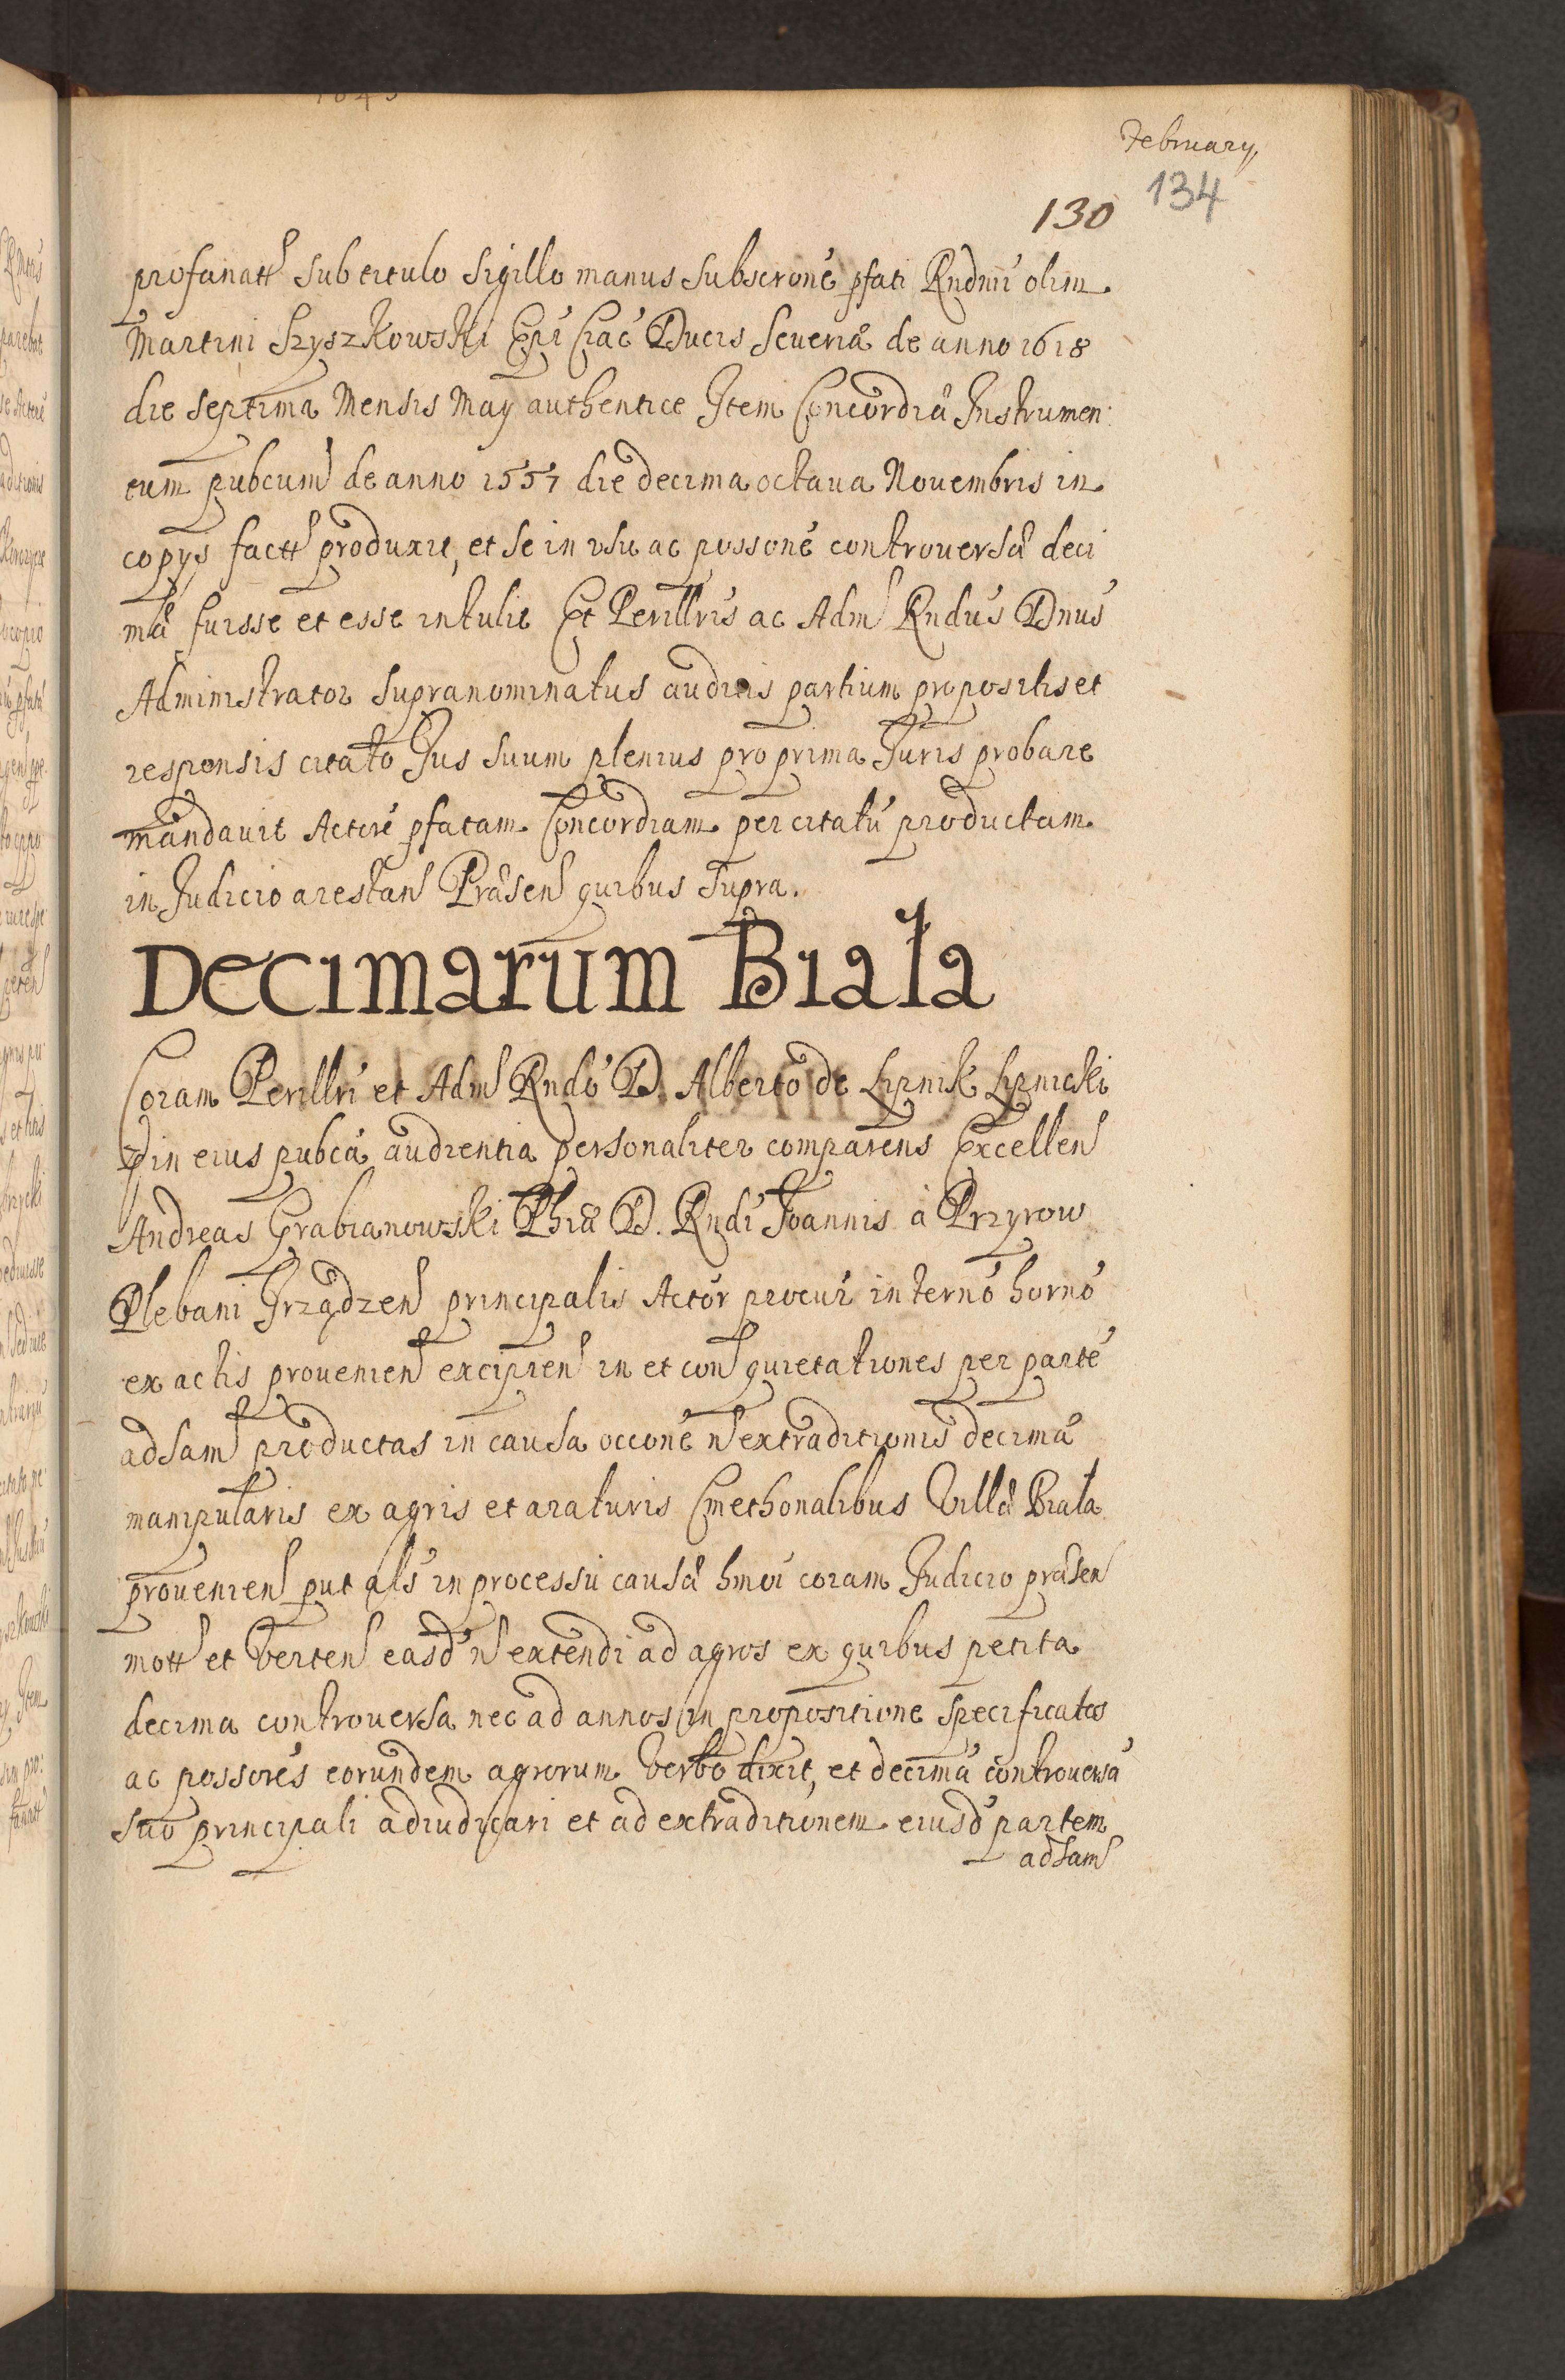 February
134
130
profanatt sub titulo Sigillo manus subscrone pfati Rndmi olim
Martini Szyszkowski Epi Crac Ducis Severiæ de anno 1618
die septima Mensis May authentice Item Concordiæ Instrumen:
tum pubcum de anno 1557 die decima octava Novembris in
copys factt produxit, et se in usu ac possone controversæ deci
mæ fuisse et esse intulit Et Perillris ac Adm Rndus Dnus
Administrator supranominatus auditis partium propositis et
responsis citato Jus suum plenius pro prima Juris probare
mandavit Actore pfatam Concordiam per citatu productam
in Judicio arestan Præsen quibus supra.
Decimarum Biała
Coram Perillri et Adm Rndo D. Alberto de Lipnik Lipnicki
in eius pubca audientia personaliter comparens Excellen
Andreas Grabianowski Phiæ D. Rndi Joannis à Przyrow
Plebani Irządzen principalis Actor procur in terno horno
ex actis provenien excipien in et con quietationes per parte
adsam productas in causa occone n extraditionis decimæ
manipularis ex agris et araturis Cmethonalibus Villæ Biała
provenien put als in processu causæ hmoi coram Judicio præsen
mott et verten easd n extendi ad agros ex quibus petita
decima controversa nec ad annos in propositione specificatos
ac possores eorundem agrorum verbo dixit, et decima controversa
suo principali adiudicari et ad extraditionem eiusd partem
adsam